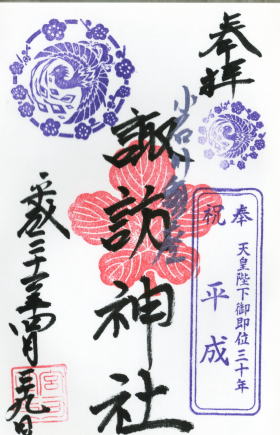 奉拝
小石川鎮座
諏訪神社
奉祝
天皇陛下御即位三十年
平成
平成三十一年四月三九日